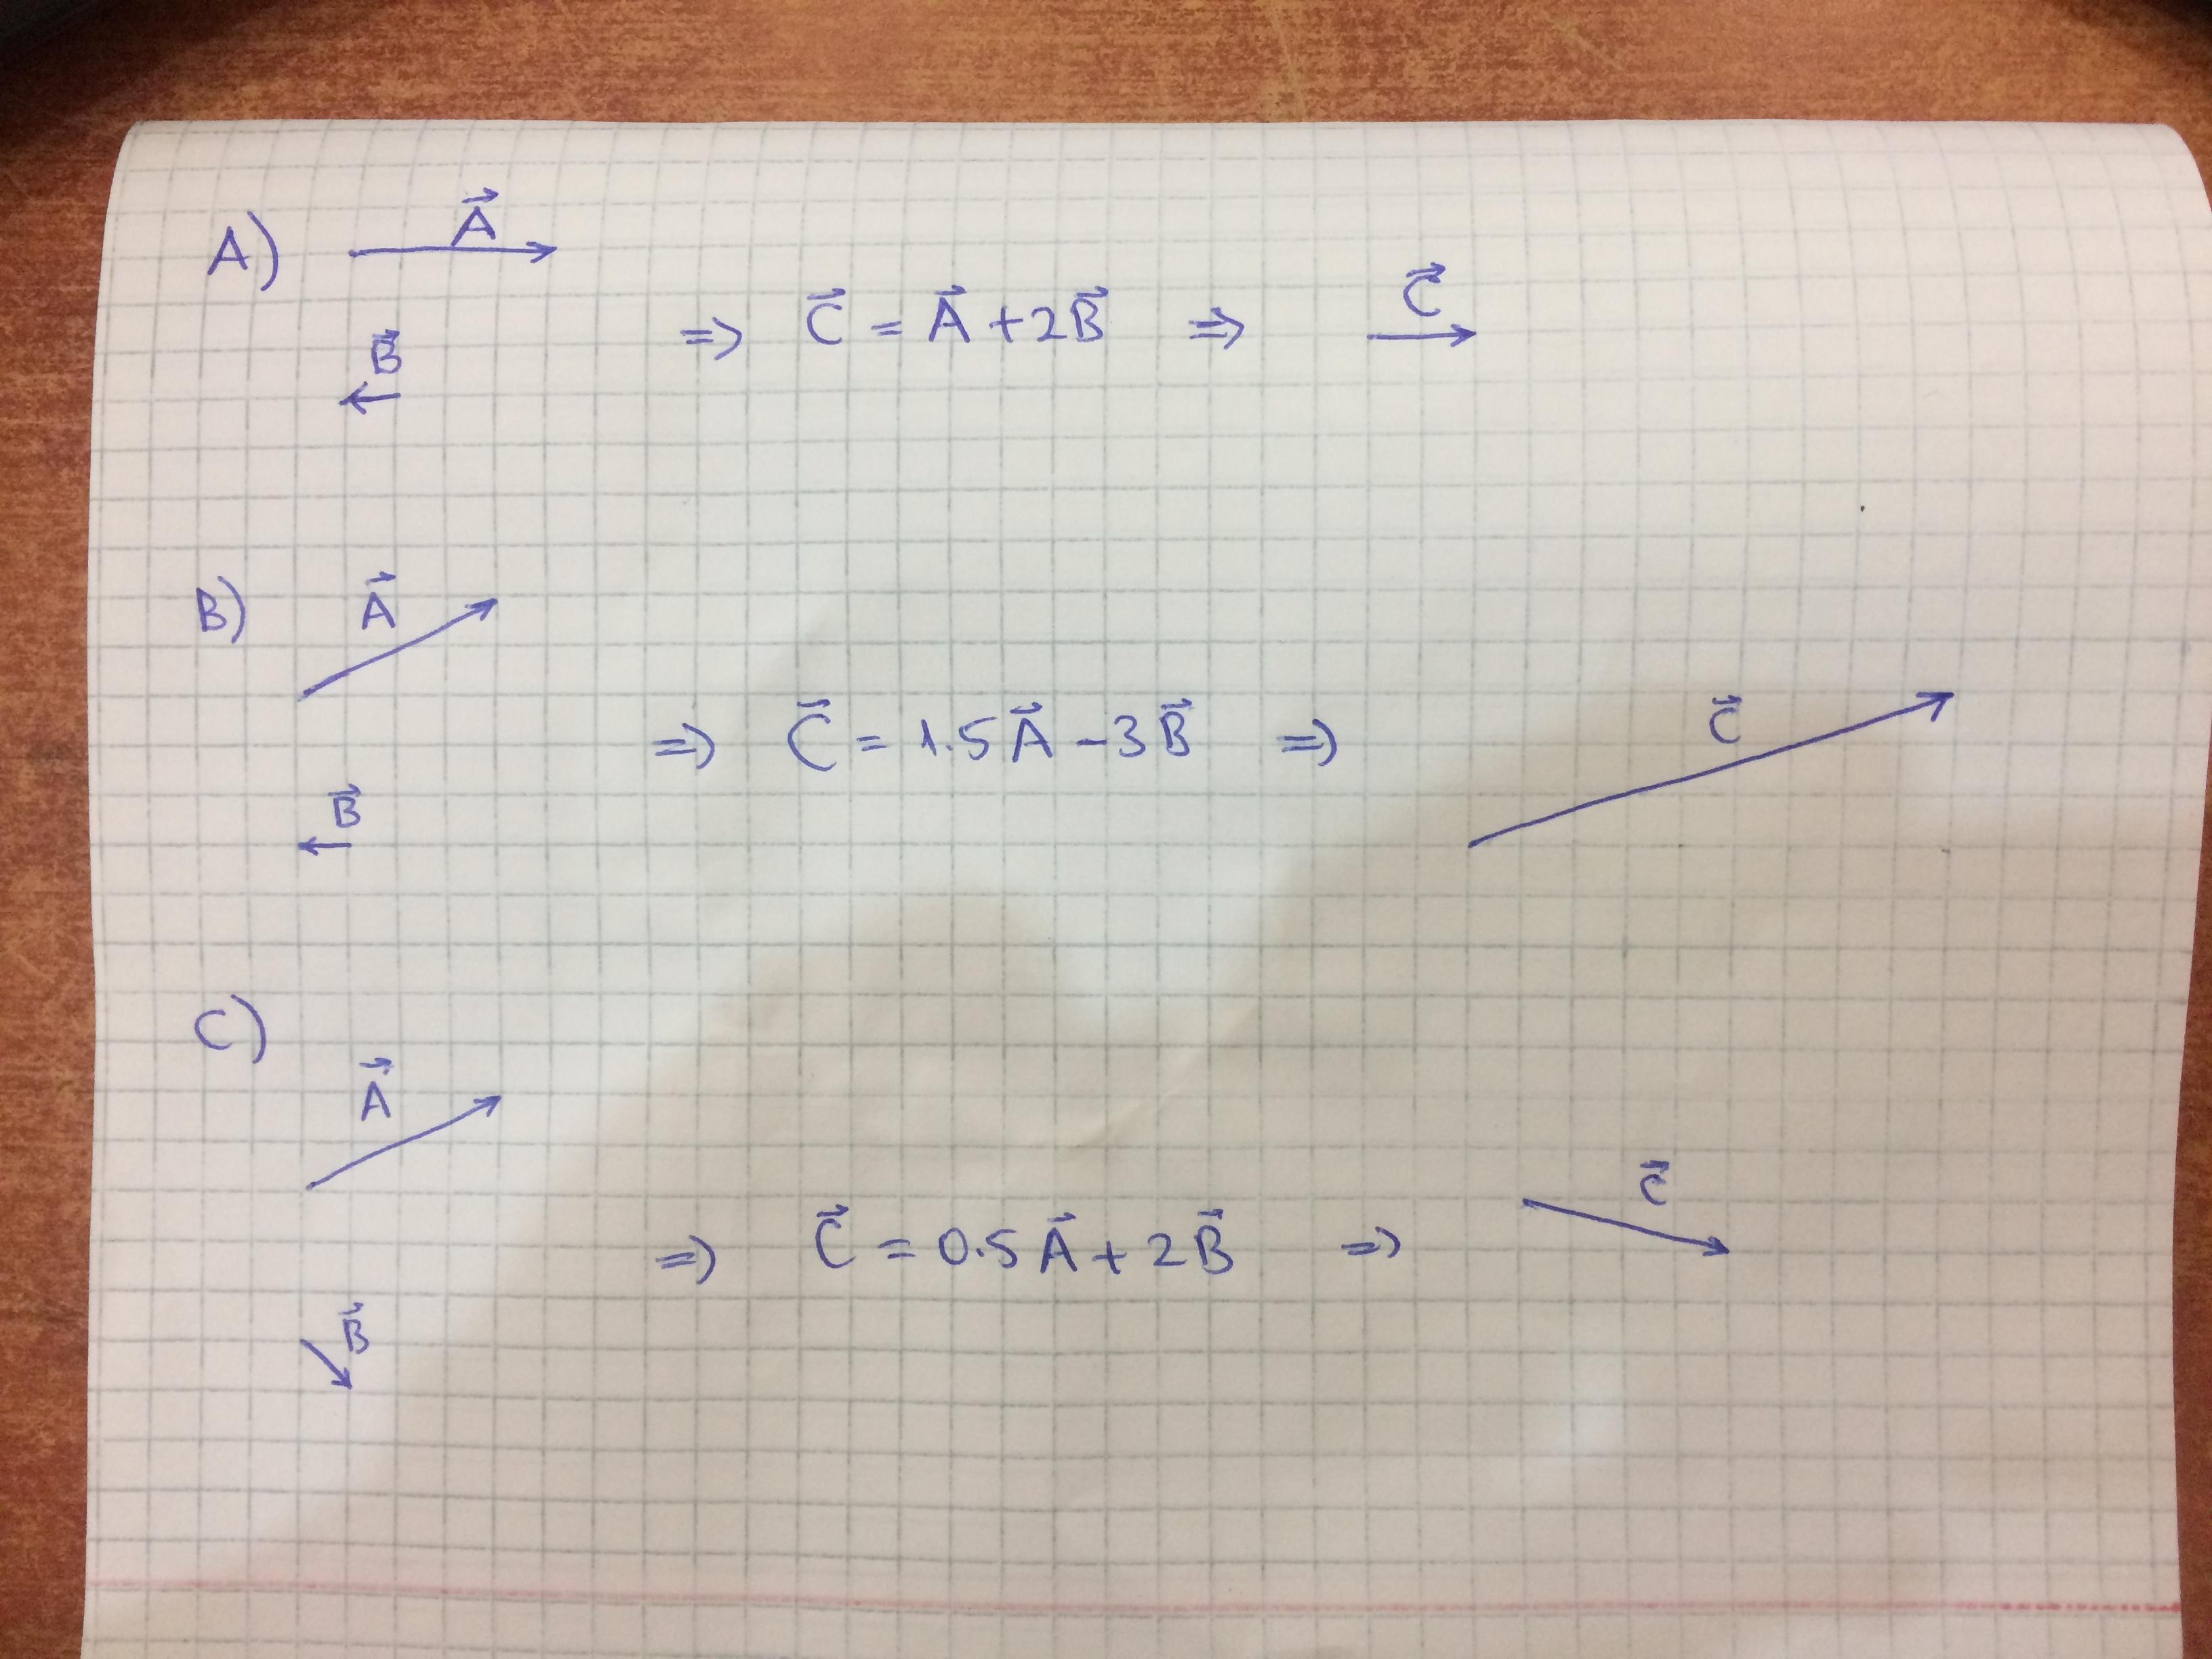 A) A⃗
B⃗
=> C⃗ = A⃗ + 2B⃗ => C⃗
B) A⃗
B⃗
=> C⃗ = 1.5A⃗ - 3B⃗ => C⃗
C)
A⃗
B⃗
=> C⃗ = 0.5A⃗ + 2B⃗ => C⃗